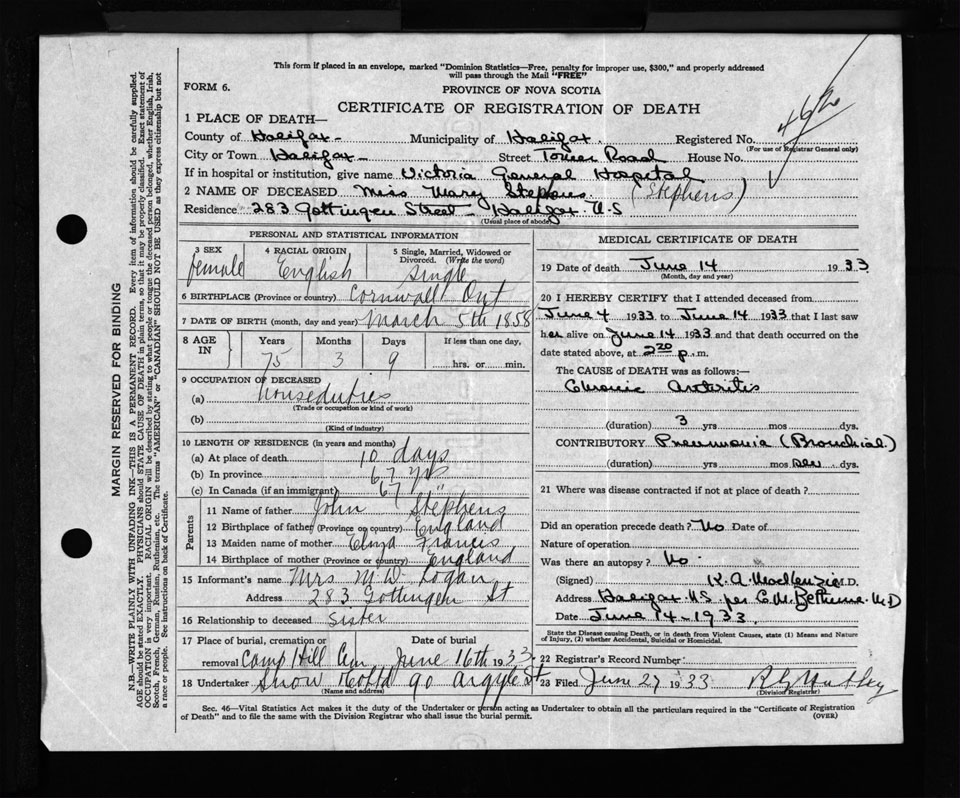 This form if placed in an envelope, marked "Dominion Statistics—Free, penalty for improper use, $300," and properly addressed
will pass through the Mail "FREE"
FORM 6.
PROVINCE OF NOVA SCOTIA
CERTIFICATE OF REGISTRATION OF DEATH
1 PLACE OF DEATH—
County of Halifax Municipality of Halifax. Registered No.
(For use of Registrar General only)
City or Town Halifax Street Tower Road House No.
If in hospital or institution, give name Victoria General Hospital
2 NAME OF DECEASED Miss Mary Stephens (Stephens)
Residence 283 Gottingen Street - Halifax N.S
(Usual place of abode)
PERSONAL AND STATISTICAL INFORMATION
3 SEX female
4 RACIAL ORIGIN English
5 Single, Married, Widowed or Divorced. (Write the word) Single
6 BIRTHPLACE (Province or country) Cornwall Ont
7 DATE OF BIRTH (month, day and year) March 5th 1858
8 AGE IN Years 75 Months 3 Days 9 If less than one day, hrs. or min.
9 OCCUPATION OF DECEASED
(a) houseduties
(Trade or occupation or kind of work)
(b)
(Kind of industry)
10 LENGTH OF RESIDENCE (in years and months)
(a) At place of death 10 days
(b) In province 67 yrs
(c) In Canada (if an immigrant) 67 "
Parents
11 Name of father John Stephens
12 Birthplace of father (Province or country) England
13 Maiden name of mother Eliza Francis
14 Birthplace of mother (Province or country) England
15 Informant's name Mrs M.W. Logan
Address 283 Gottingen St
16 Relationship to deceased Sister
17 Place of burial, cremation or removal Camp Hill Cem
Date of burial June 16th 1933
18 Undertaker Snow & Co Ltd 90 Argyle St
(Name and address)
MEDICAL CERTIFICATE OF DEATH
19 Date of death June 14 1933
(Month, day and year)
20 I HEREBY CERTIFY that I attended deceased from
June 4 1933 to June 14 1933 that I last saw
her alive on June 14 1933 and that death occurred on the
date stated above, at 2.20 p. m.
The CAUSE of DEATH was as follows:—
Chronic Arthritis
(duration) 3 yrs mos dys.
CONTRIBUTORY Pneumonia (Bronchial)
(duration) yrs mos dys.
21 Where was disease contracted if not at place of death?
Did an operation precede death? No Date of
Nature of operation
Was there an autopsy? No
(Signed) K. A. MacKenzie M.D.
Address Halifax N.S. per C. M. Bethune M.D
Date June 14 - 1933.
State the Disease causing Death, or in death from Violent Causes, state (1) Means and Nature
of Injury, (2) whether Accidental, Suicidal or Homicidal.
22 Registrar's Record Number
23 Filed June 27 1933
(Division Registrar)
Sec. 46—Vital Statistics Act makes it the duty of the Undertaker or person acting as Undertaker to obtain all the particulars required in the "Certificate of Registration
of Death" and to file the same with the Division Registrar who shall issue the burial permit.
(OVER)
MARGIN RESERVED FOR BINDING
N.B.—WRITE PLAINLY WITH UNFADING INK—THIS IS A PERMANENT RECORD. Every item of information should be carefully supplied.
AGE should be stated EXACTLY. PHYSICIANS should STATE CAUSE OF DEATH in plain terms, so that it may be properly classified. Exact statement of
OCCUPATION is very important. RACIAL ORIGIN will be described by stating to what people or tongue the deceased person belonged, whether English, Irish,
Scotch, French, German, Russian, Ruthenian, etc. The terms "AMERICAN" or "CANADIAN" SHOULD NOT BE USED as they express citizenship but not
a race or people. See instructions on back of Certificate.